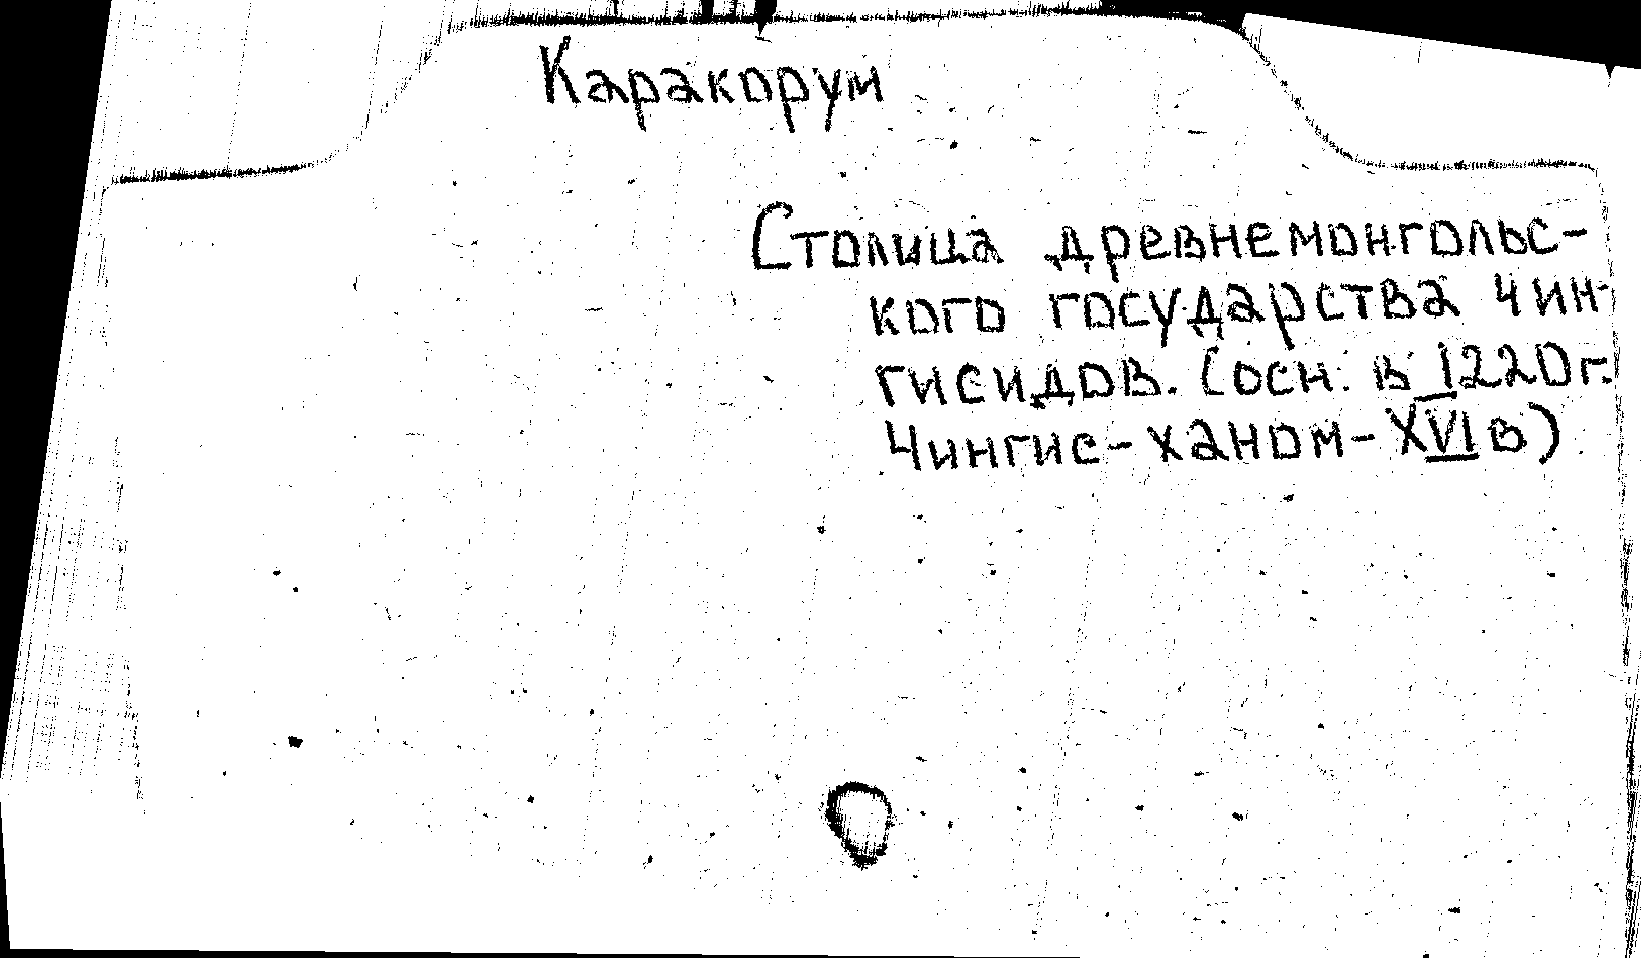 Каракорум
Столица древнемонгольс-
кого государства чин-
гисидов. (осн. в 1220г.
Чингис-ханом-XVI в)